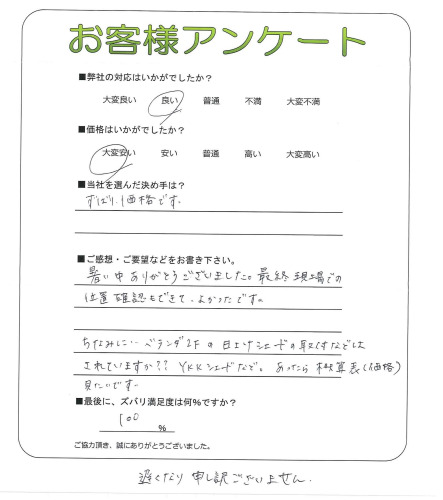 お客様アンケート
■弊社の対応はいかがでしたか?
大変良い 良い 普通 不満 大変不満
■価格はいかがでしたか?
大変安い 安い 普通 高い 大変高い
■当社を選んだ決め手は?
ずばり、価格です。
■ご感想・ご要望などをお書き下さい。
暑い中ありがとうございました。最終現場での
位置確認もできて、よかったです。
ちなみに… ベランダ2Fの日よけシェードの取付などは
されていますか?? YKKシェードなど。あったら 概算表(価格)
見たいです。
■最後に、ズバリ満足度は何%ですか?
100
%
ご協力頂き、誠にありがとうございました。
遅くなり申し訳ございません.